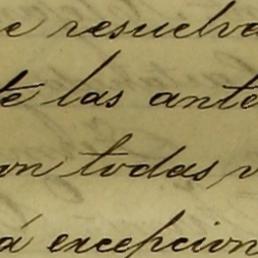 e resuelva
te las ante
on todas v
á excepcion